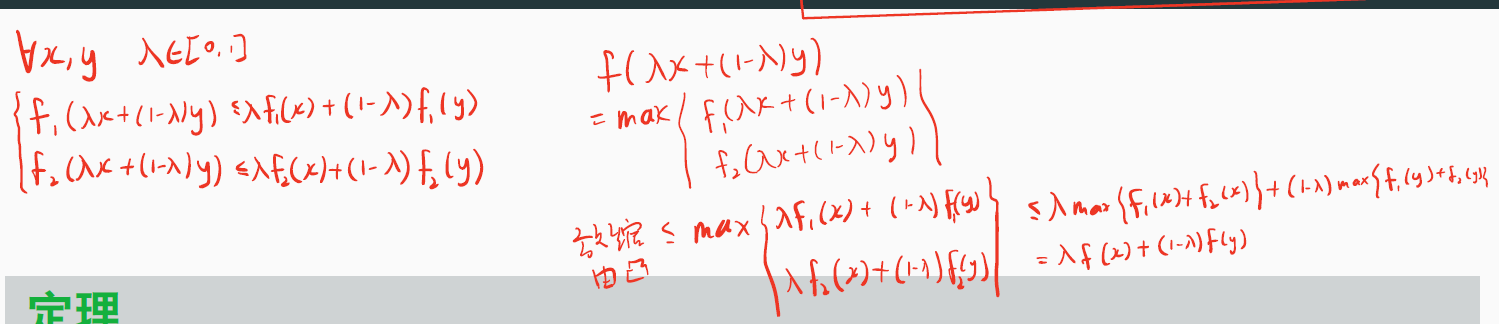 ∀x,y λ∈[0,1]
f₁(λx+(1-λ)y) ≤λf₁(x)+(1-λ)f₁(y)
f₂(λx+(1-λ)y) ≤λf₂(x)+(1-λ)f₂(y)
f(λx+(1-λ)y)
=max{ f₁(λx+(1-λ)y)
f₂(λx+(1-λ)y) }
放缩 ≤ max{ λf₁(x)+(1-λ)f₁(y)
由凸 λf₂(x)+(1-λ)f₂(y) }
≤λmax{f₁(x)+f₂(x)}+(1-λ)max{f₁(y)+f₂(y)}
=λf(x)+(1-λ)f(y)
定理